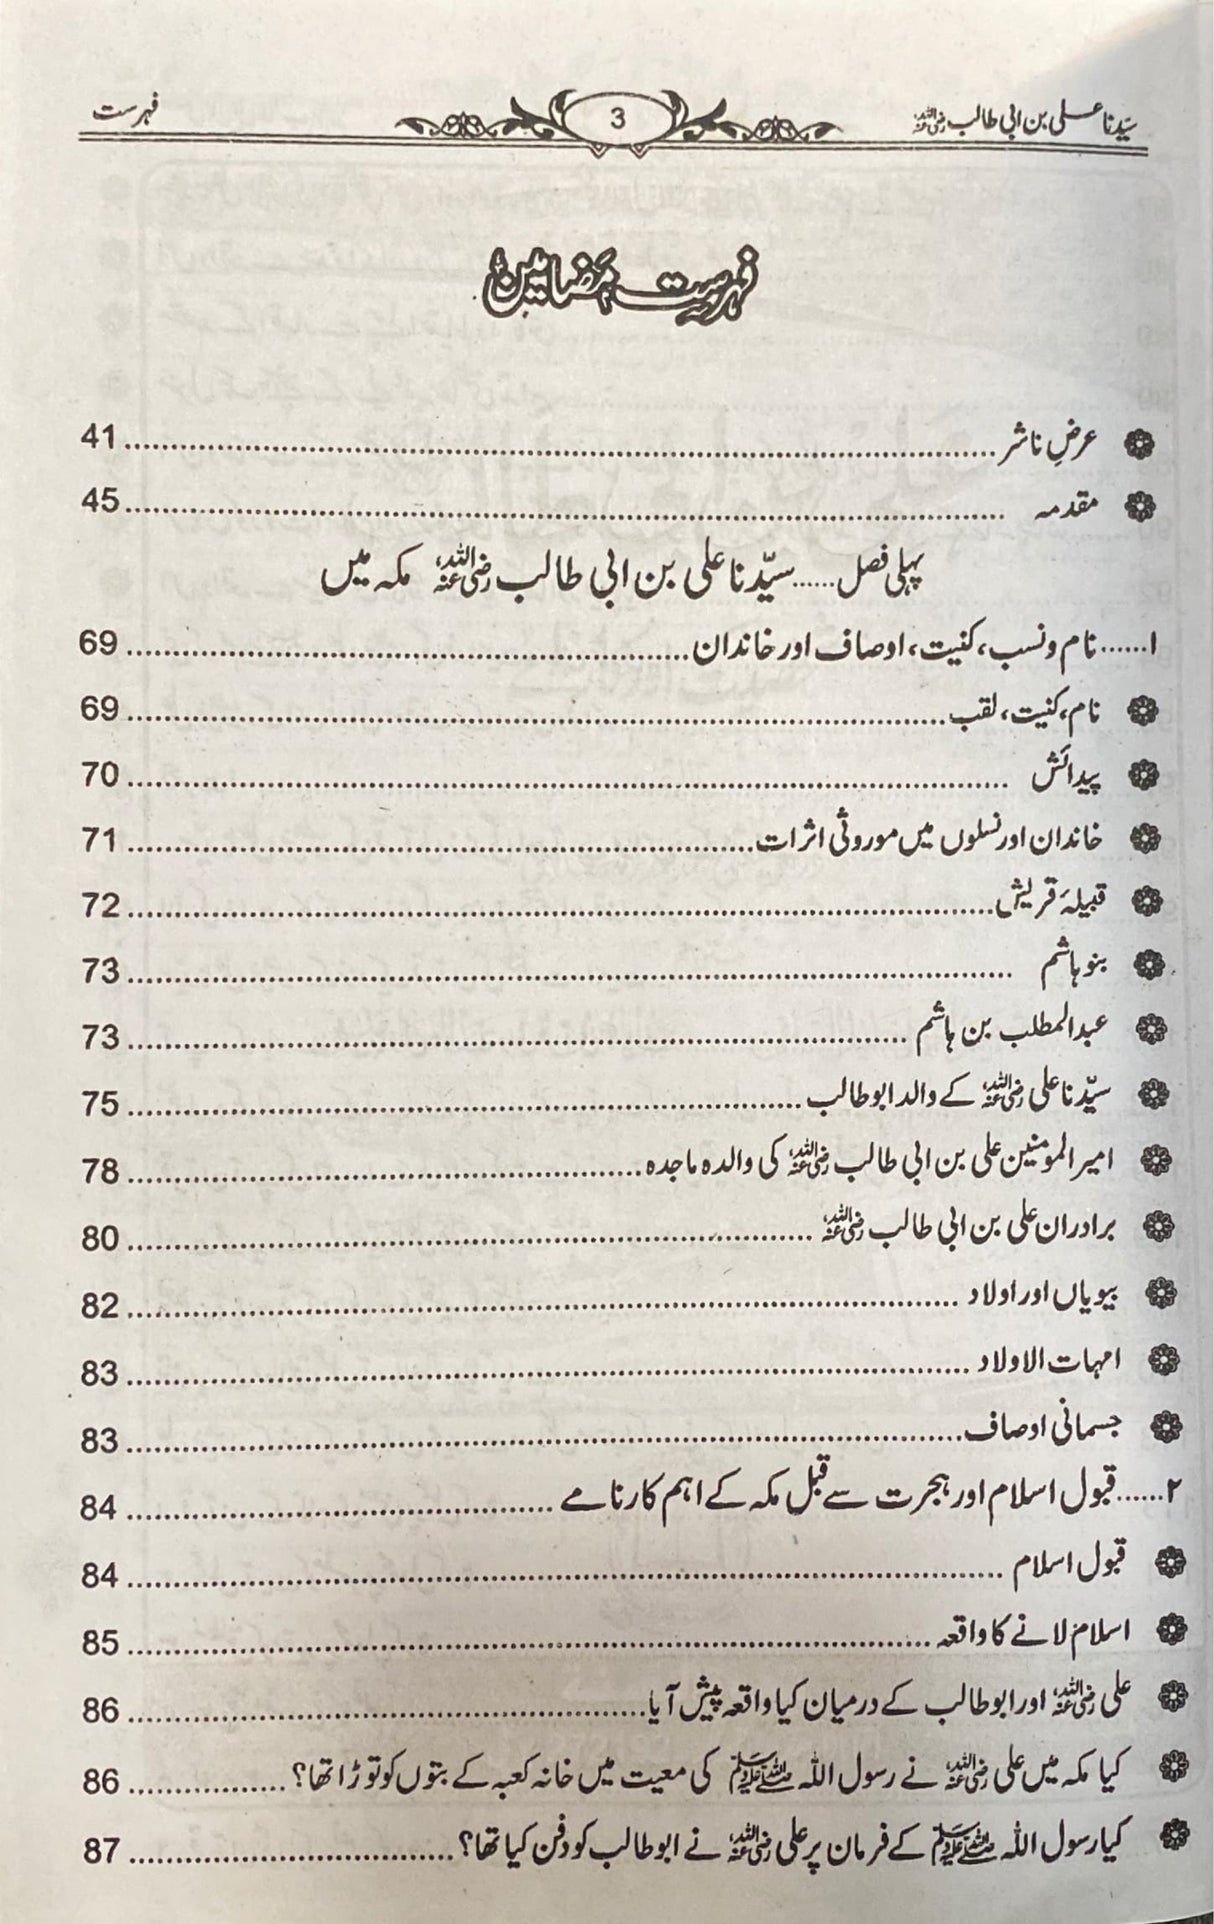 سیّدنا علی بن ابی طالب رضی اللہ عنہ 3 فہرست
فہرست مضامین
عرضِ ناشر 41
مقدمہ 45
پہلی فصل......سیّدنا علی بن ابی طالب رضی اللہ عنہ مکہ میں
۱......نام و نسب، کنیت، اوصاف اور خاندان 69
نام، کنیت، لقب 69
پیدائش 70
خاندان اور نسلوں میں موروثی اثرات 71
قبیلۂ قریش 72
بنو ہاشم 73
عبدالمطلب بن ہاشم 73
سیّدنا علی رضی اللہ عنہ کے والد ابو طالب 75
امیر المومنین علی بن ابی طالب رضی اللہ عنہ کی والدہ ماجدہ 78
برادران علی بن ابی طالب رضی اللہ عنہ 80
بیویاں اور اولاد 82
امہات الاولاد 83
جسمانی اوصاف 83
۲......قبول اسلام اور ہجرت سے قبل مکہ کے اہم کارنامے 84
قبول اسلام 84
اسلام لانے کا واقعہ 85
علی رضی اللہ عنہ اور ابو طالب کے درمیان کیا واقعہ پیش آیا 86
کیا مکہ میں علی رضی اللہ عنہ نے رسول اللہ ﷺ کی معیت میں خانہ کعبہ کے بتوں کو توڑا تھا؟ 86
کیا رسول اللہ ﷺ کے فرمان پر علی رضی اللہ عنہ نے ابو طالب کو دفن کیا تھا؟ 87